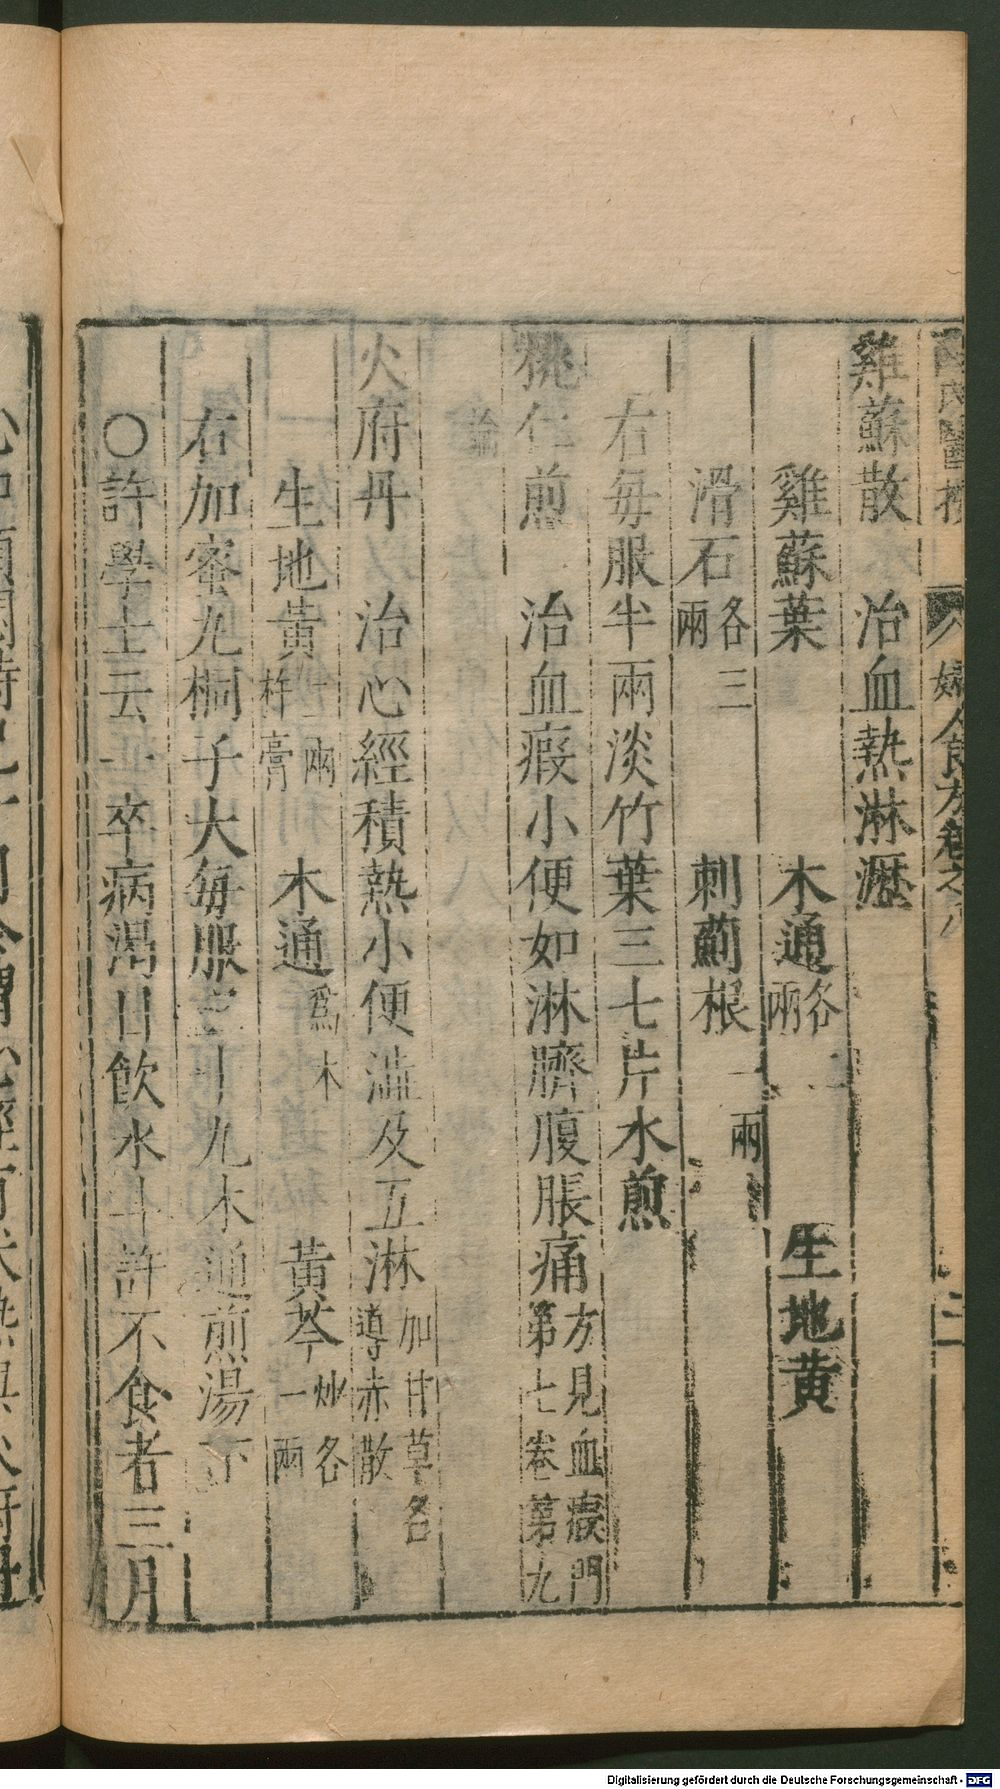 婦人良方卷之八　三
雞蘇散　治血熱淋瀝
雞蘇葉　木通各二兩　生地黃
滑石各三兩　刺薊根一兩
右每服半兩淡竹葉三七片水煎
桃仁煎　治血瘕小便如淋臍腹脹痛方見血瘕門第七卷第九
論
火府丹　治心經積熱小便澁及五淋加甘草各導赤散
生地黃二兩杵膏　木通爲木　黃芩炒各一兩
右加蜜丸桐子大每服三十丸木通煎湯下
○許學士云一卒病渴日飲水斗許不食者三月
Digitalisierung gefördert durch die Deutsche Forschungsgemeinschaft - DFG